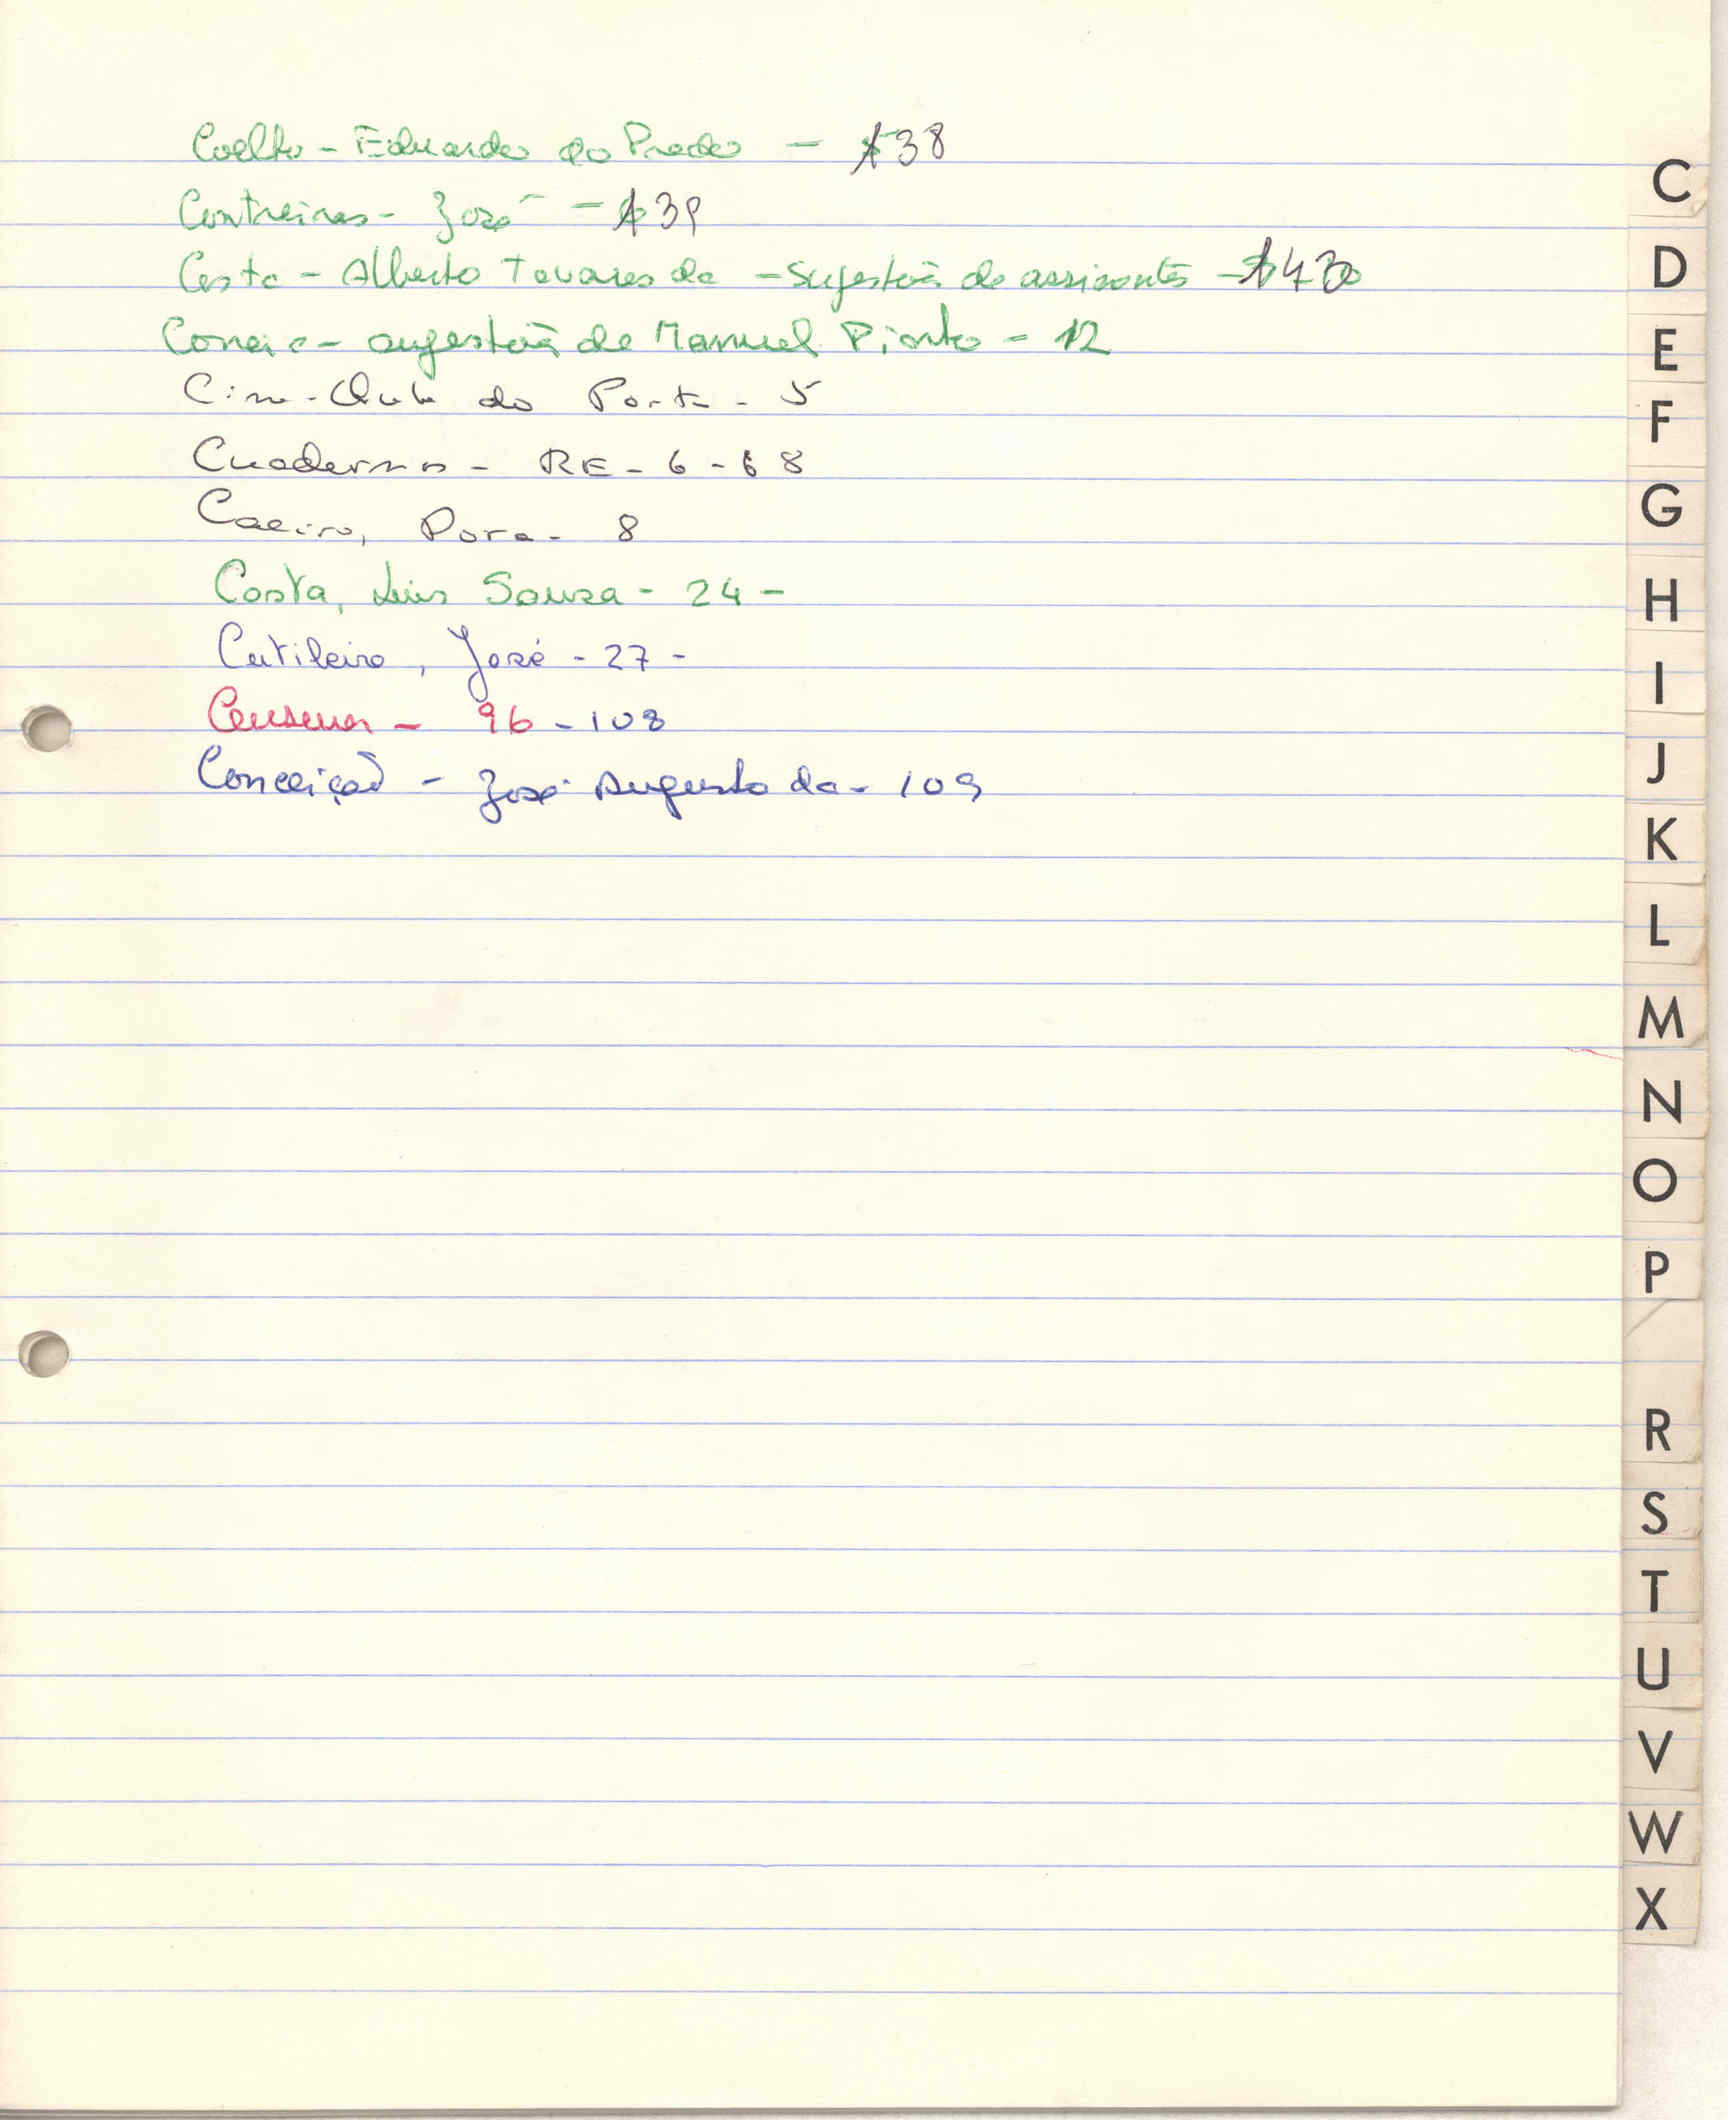 Coelho - Eduardo do Prado - 38
Contreiras - José - 39
Costa - Alberto Tavares da - Sugestão de assinantes - 43
sugestão de Manuel Pionto - 12
Cine-Club do Porto - 5
Cuadernos - RE - 6 - 68
Caeiro, - 8
Costa, Luis Souza - 24 -
Cutileiro, José - 27 -
Censura - 96 - 108
Conceição - José Augusto da - 109
C
D
E
F
G
H
I
J
K
L
M
N
O
P
R
S
T
U
V
W
X